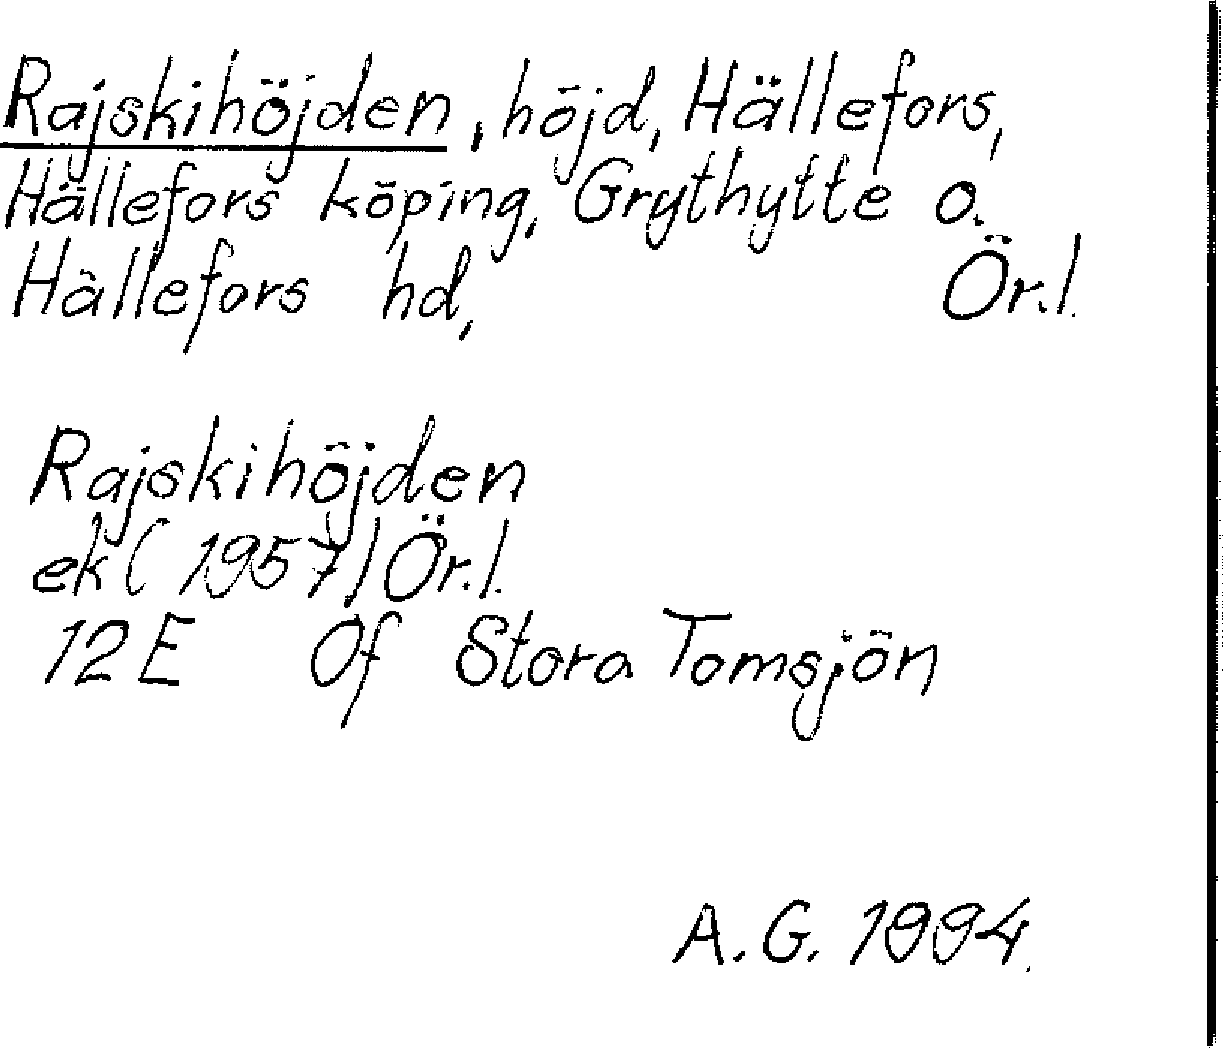 Rajskihöjden, höjd, Hällefors,
Hällefors köping, Grythytte o.
Hällefors hd, Ör.l.
Rajskihöjden
ek (1957) Ör.l.
12E 0f Stora Tomsjön
A.G. 1994.